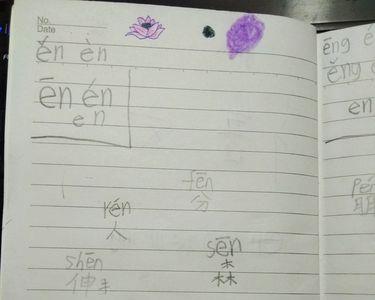 No.
Date
ěn èn
ēn én
en
ēng é
ěng
en
fēn
分
rén
人
sēn
森
shēn
伸手
pén
朋